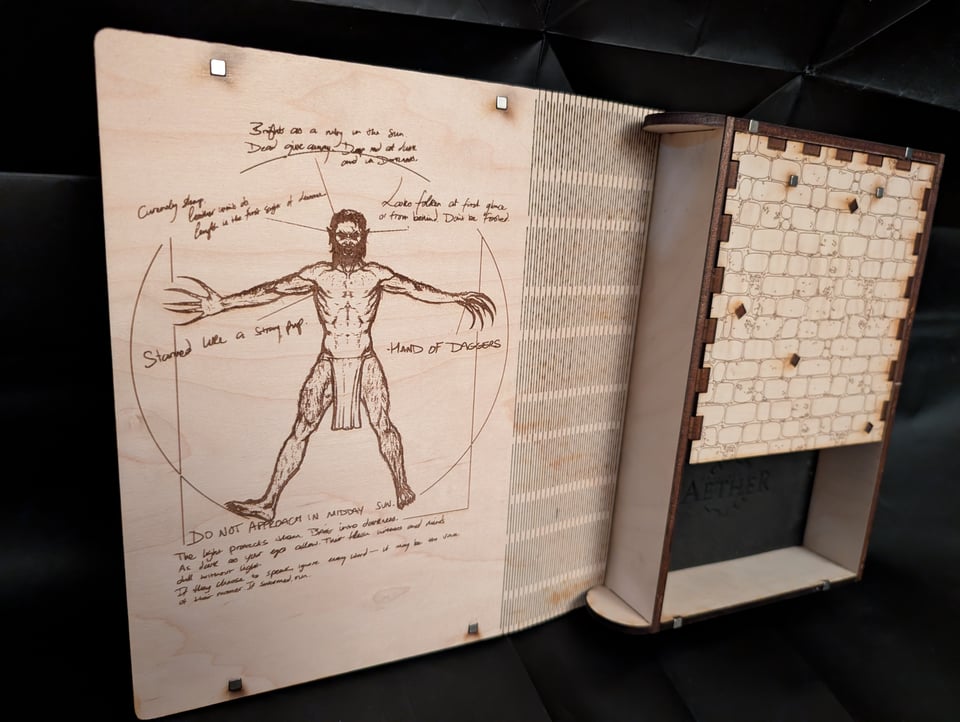 Bright as a ruby in the sun
Dead give away. Deep red at dusk
and in Darkness.
Currently sharp.
is the first sign of
Looks fallen at first glance
or from behind Don't be fooled
Starved like a strong pup.
HAND OF DAGGERS
DO NOT APPROACH IN MIDDAY SUN.
The light protects them. Bring into darkness.
As dark as your eyes allow. Their flesh and minds
dull without light.
If they choose to speak ignore every word - it may be the voice
of their master. If swarmed run.
AETHER